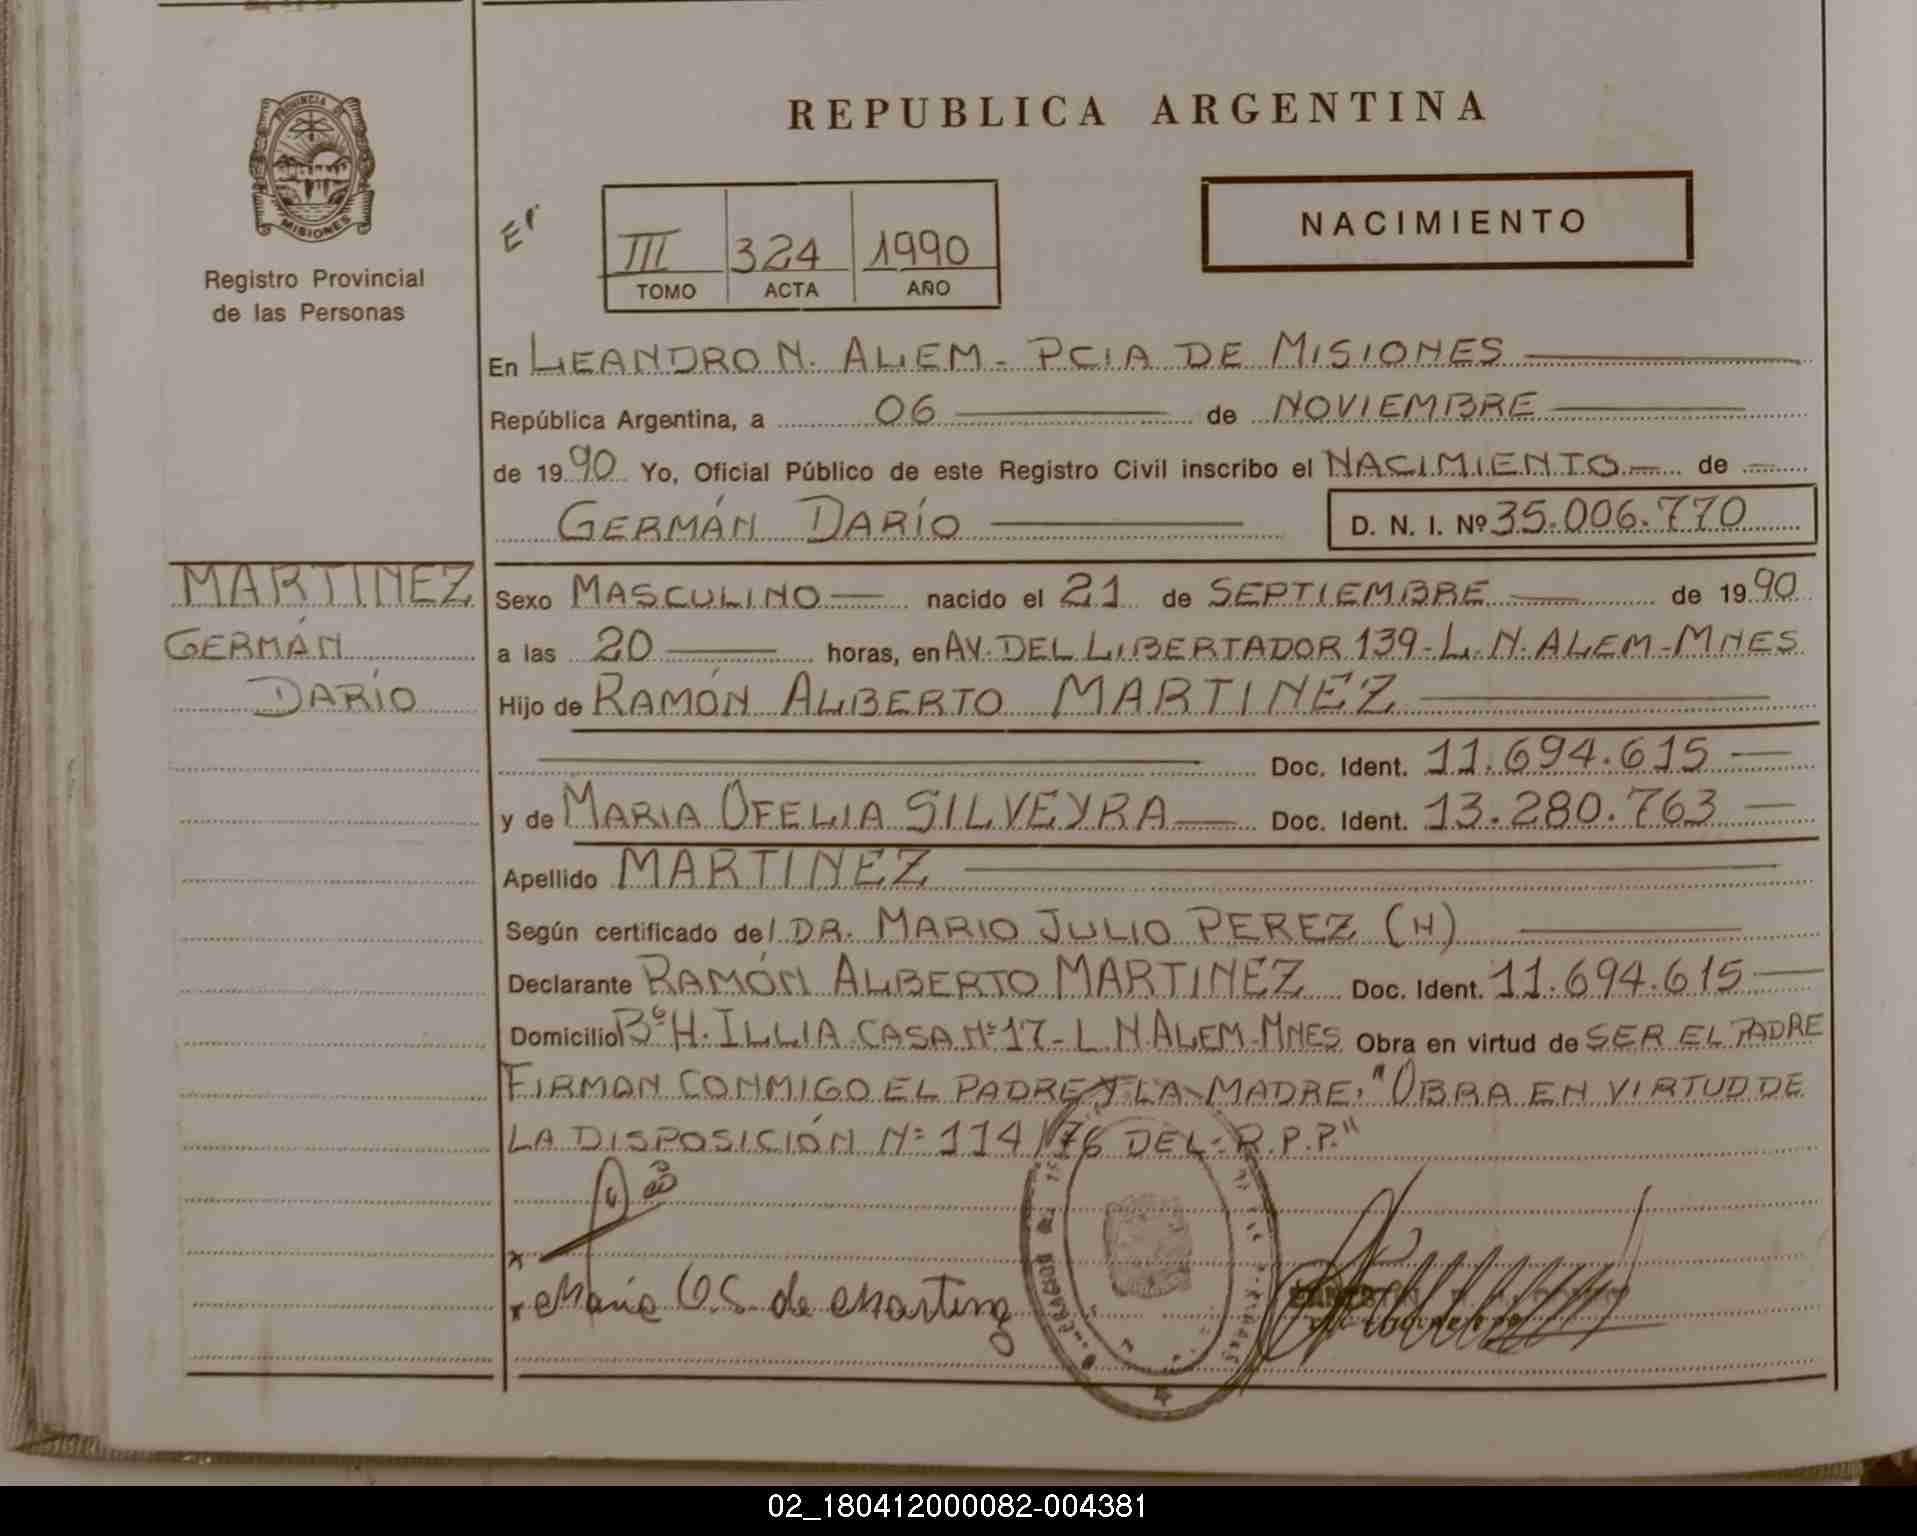 REPUBLICA ARGENTINA
PROVINCIA DE
MISIONES
Registro Provincial
de las Personas
III 324 1990
TOMO ACTA AÑO
NACIMIENTO
En LEANDRO N. ALEM - PCIA DE MISIONES
República Argentina, a 06 de NOVIEMBRE
de 1990 Yo, Oficial Público de este Registro Civil inscribo el NACIMIENTO de
GERMÁN DARÍO D. N. I. Nº 35.006.770
MARTINEZ
GERMÁN
DARÍO
Sexo MASCULINO nacido el 21 de SEPTIEMBRE de 1990
a las 20 horas, en AV. DEL LIBERTADOR 139 - L. N. ALEM - MNES
Hijo de RAMÓN ALBERTO MARTINEZ
Doc. Ident. 11.694.615
y de MARIA OFELIA SILVEYRA Doc. Ident. 13.280.763
Apellido MARTINEZ
Según certificado del DR. MARIO JULIO PEREZ (H)
Declarante RAMÓN ALBERTO MARTINEZ Doc. Ident. 11.694.615
Domicilio Bº H. ILLIA CASA Nº 17 - L N ALEM - MNES Obra en virtud de SER EL PADRE
FIRMAN CONMIGO EL PADRE Y LA MADRE. "OBRA EN VIRTUD DE
LA DISPOSICIÓN Nº 114/76 DEL R.P.P."
María O. S. de Martinez
02_180412000082-004381